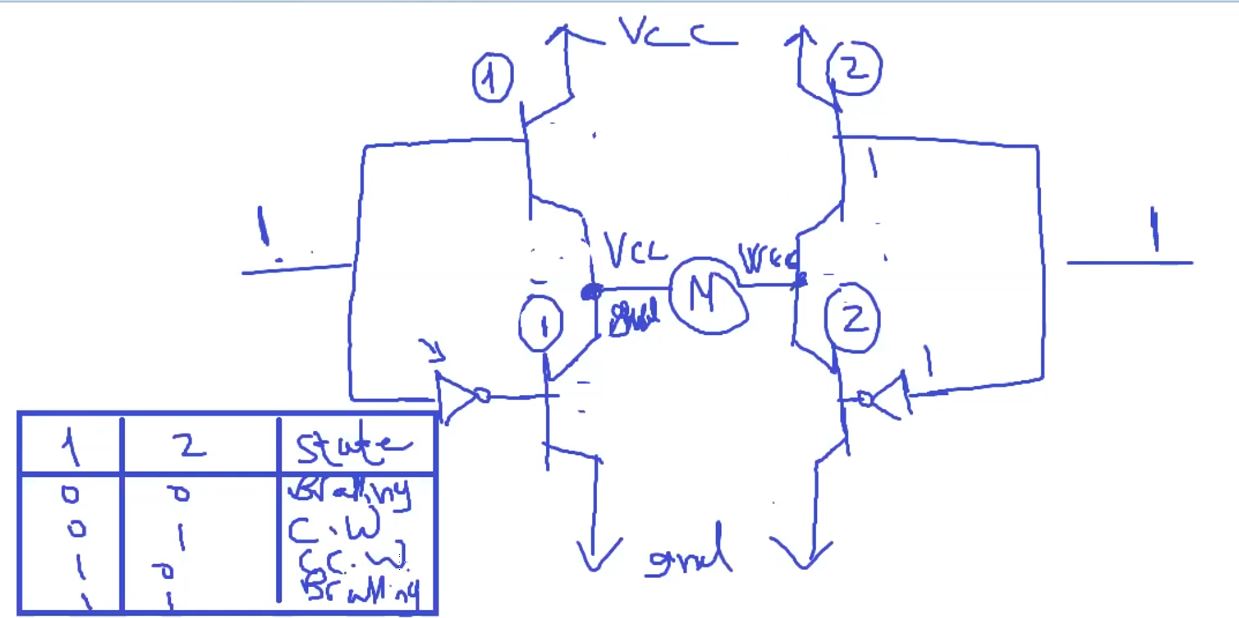 VCC
1 2
1
1 1
VCC VCC
gnd
M
1 2
1
gnd
1 2 State
0 0 Braking
0 1 C.W
1 0 C.C.W.
1 1 Braking